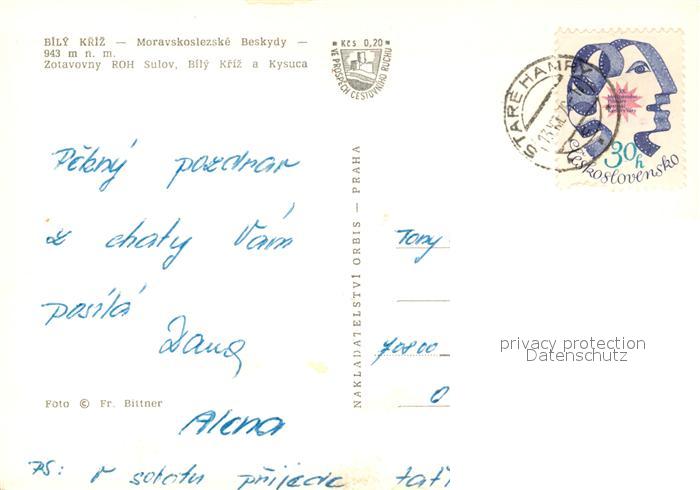 BÍLÝ KŘÍŽ — Moravskoslezské Beskydy —
943 m n. m.
Zotavovny ROH Sulov, Bílý Kříž a Kysuca
Kčs 0,20
VE PROSPĚCH CESTOVNÍHO RUCHU
STARÉ HAMRY
30h
Československo
Pěkný pozdrav
z chaty Vám
posílá
Dana
Alena
PS: v sobotu přijede tatí
NAKLADATELSTVÍ ORBIS — PRAHA
Tomy
70800
O
Foto © Fr. Bittner
privacy protection
Datenschutz